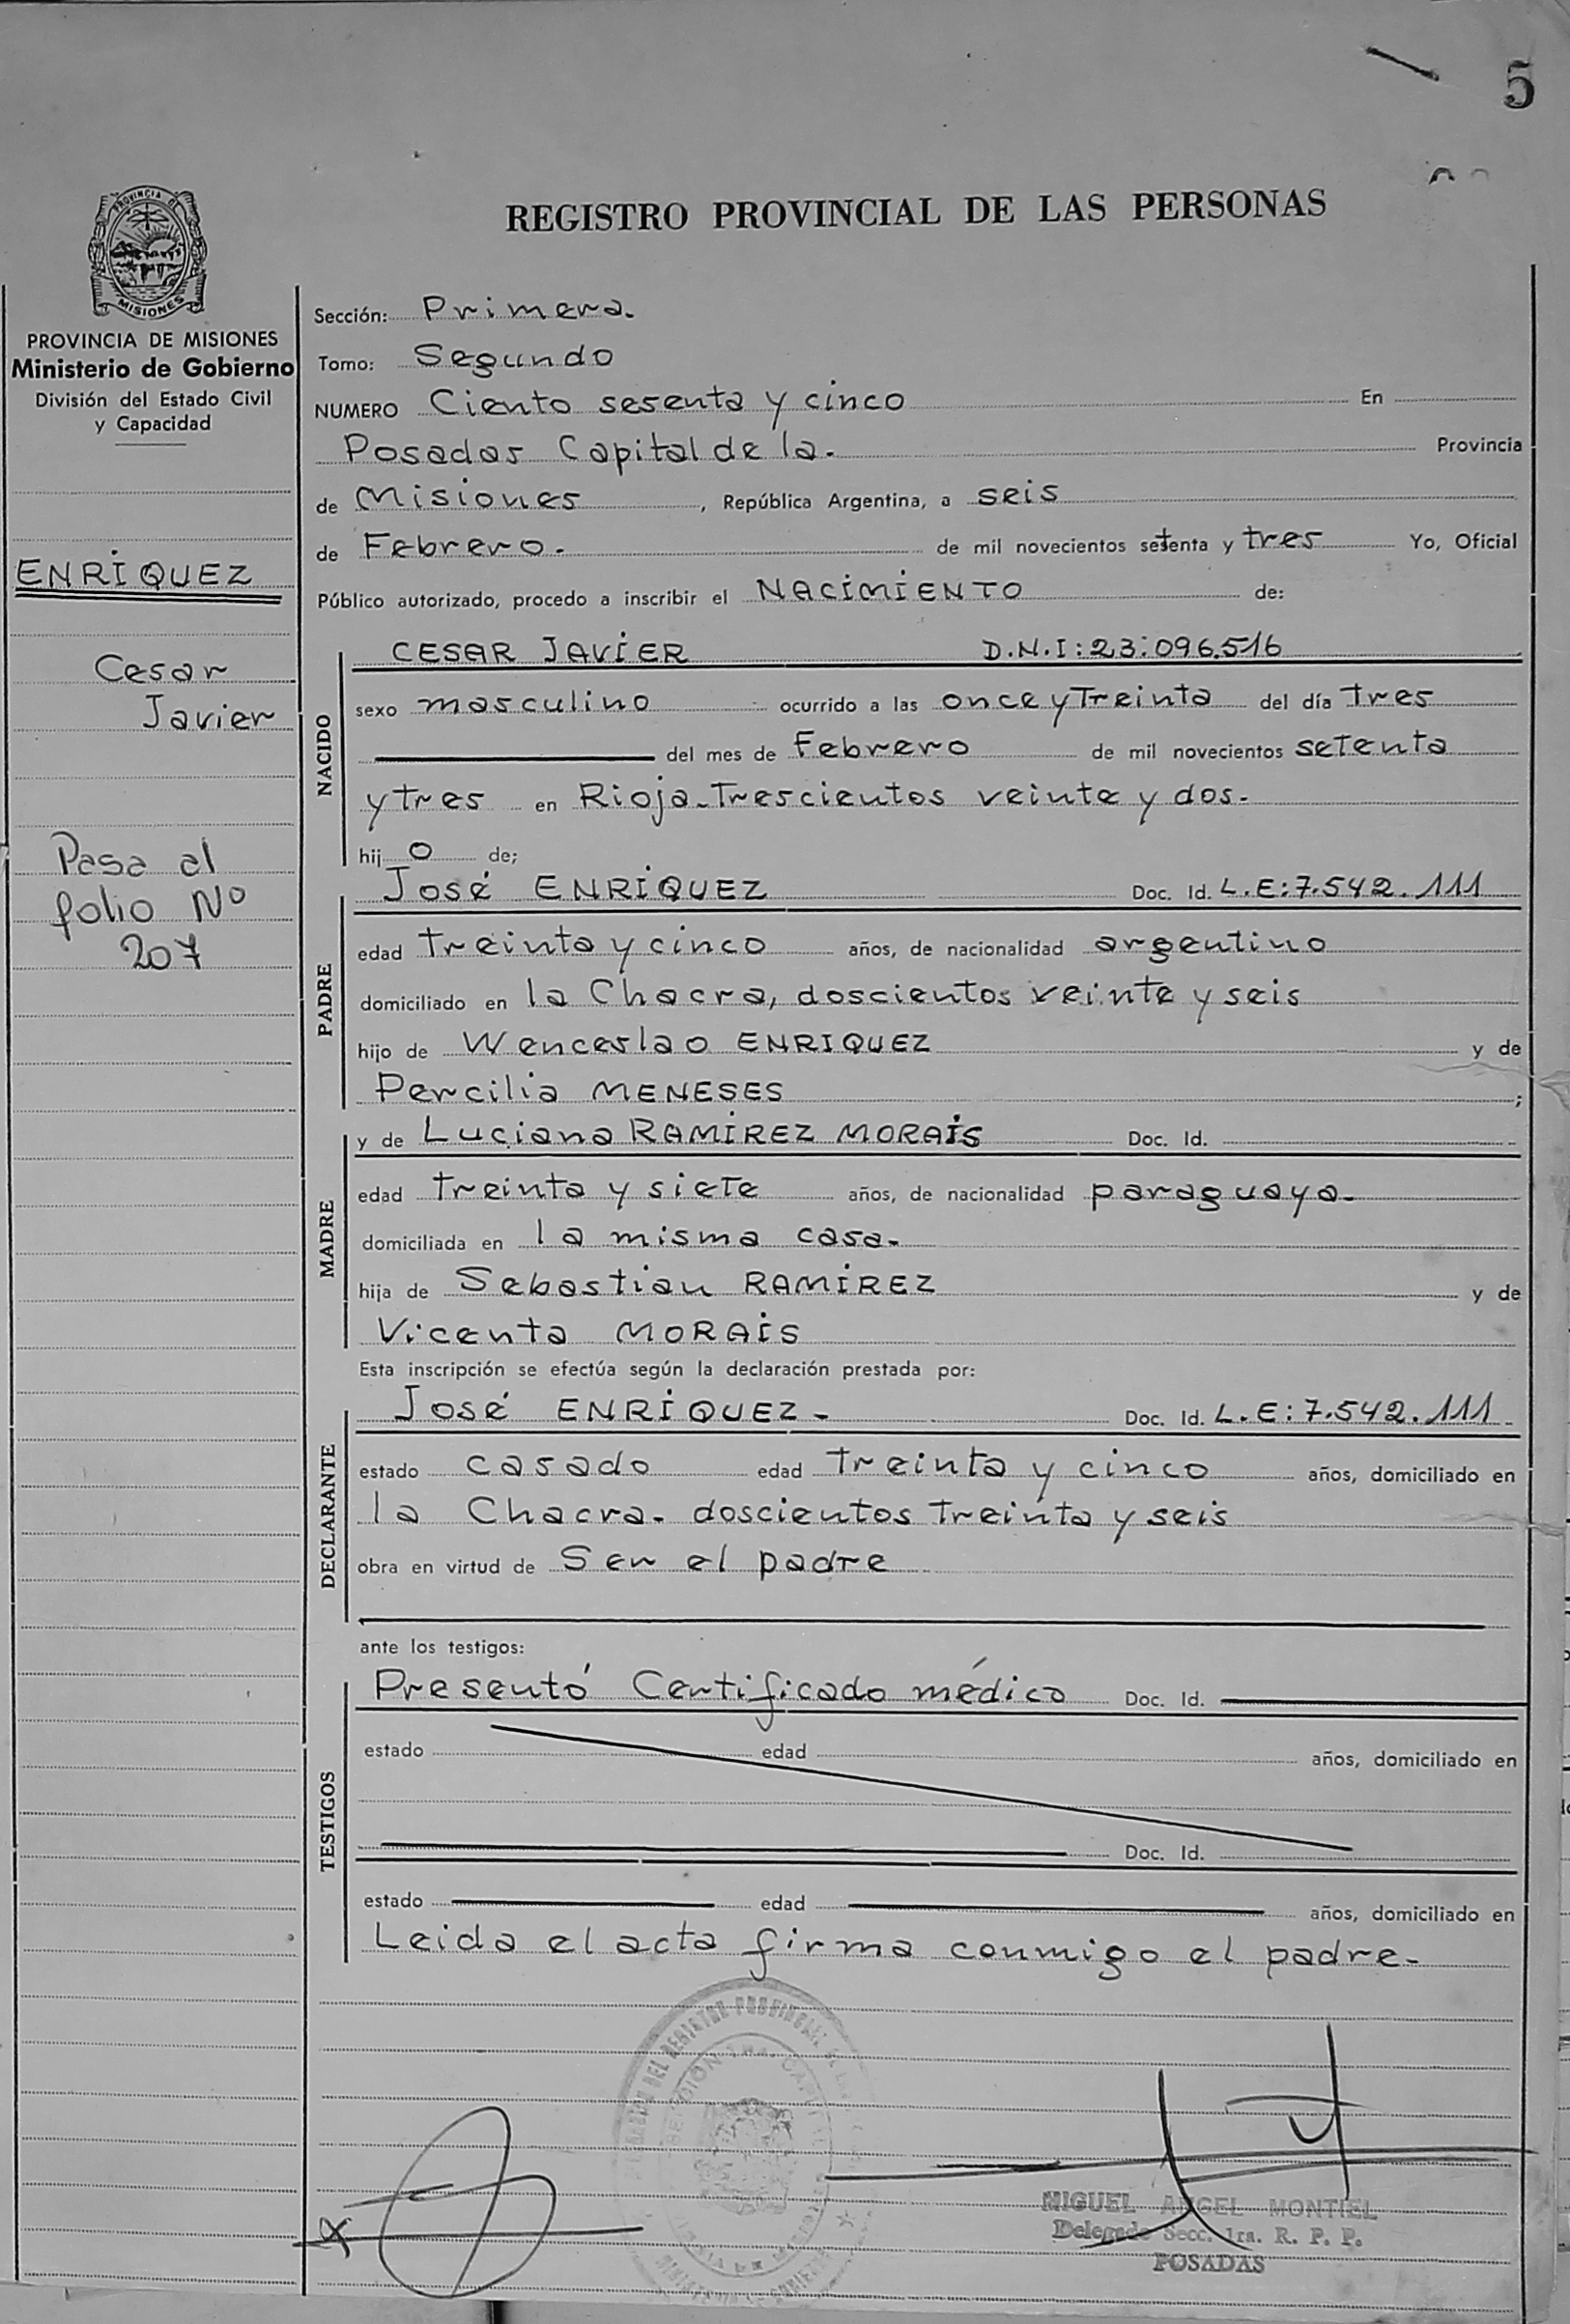 5
REGISTRO PROVINCIAL DE LAS PERSONAS
PROVINCIA DE
MISIONES
PROVINCIA DE MISIONES
Ministerio de Gobierno
División del Estado Civil
y Capacidad
ENRIQUEZ
Cesar
Javier
Pasa al
folio Nº
207
Sección: Primera.
Tomo: Segundo
NUMERO Ciento sesenta y cinco En
Posadas Capital de la. Provincia
de Misiones, República Argentina, a seis
de Febrero. de mil novecientos setenta y tres Yo, Oficial
Público autorizado, procedo a inscribir el NACIMIENTO de:
NACIDO
CESAR JAVIER D.N.I:23:096.516
sexo masculino ocurrido a las once y Treinta del día tres
del mes de Febrero de mil novecientos setenta
y tres en Rioja-Trescientos veinte y dos.
hijo de;
PADRE
José ENRIQUEZ Doc. Id. L.E:7.542.111
edad treinta y cinco años, de nacionalidad argentino
domiciliado en la Chacra, doscientos veinte y seis
hijo de Wenceslao ENRIQUEZ y de
Percilia MENESES ;
MADRE
y de Luciana RAMIREZ MORAIS Doc. Id.
edad treinta y siete años, de nacionalidad paraguaya.
domiciliada en la misma casa.
hija de Sebastian RAMIREZ y de
Vicenta MORAIS
Esta inscripción se efectúa según la declaración prestada por:
DECLARANTE
José ENRIQUEZ- Doc. Id. L.E:7.542.111
estado casado edad treinta y cinco años, domiciliado en
la Chacra- doscientos treinta y seis
obra en virtud de Ser el padre
ante los testigos:
TESTIGOS
Presentó Certificado médico Doc. Id.
estado edad años, domiciliado en
Doc. Id.
estado edad años, domiciliado en
Leida el acta firma conmigo el padre.
MIGUEL ANGEL MONTIEL
Delegado Secc. 1ra. R. P. P.
POSADAS